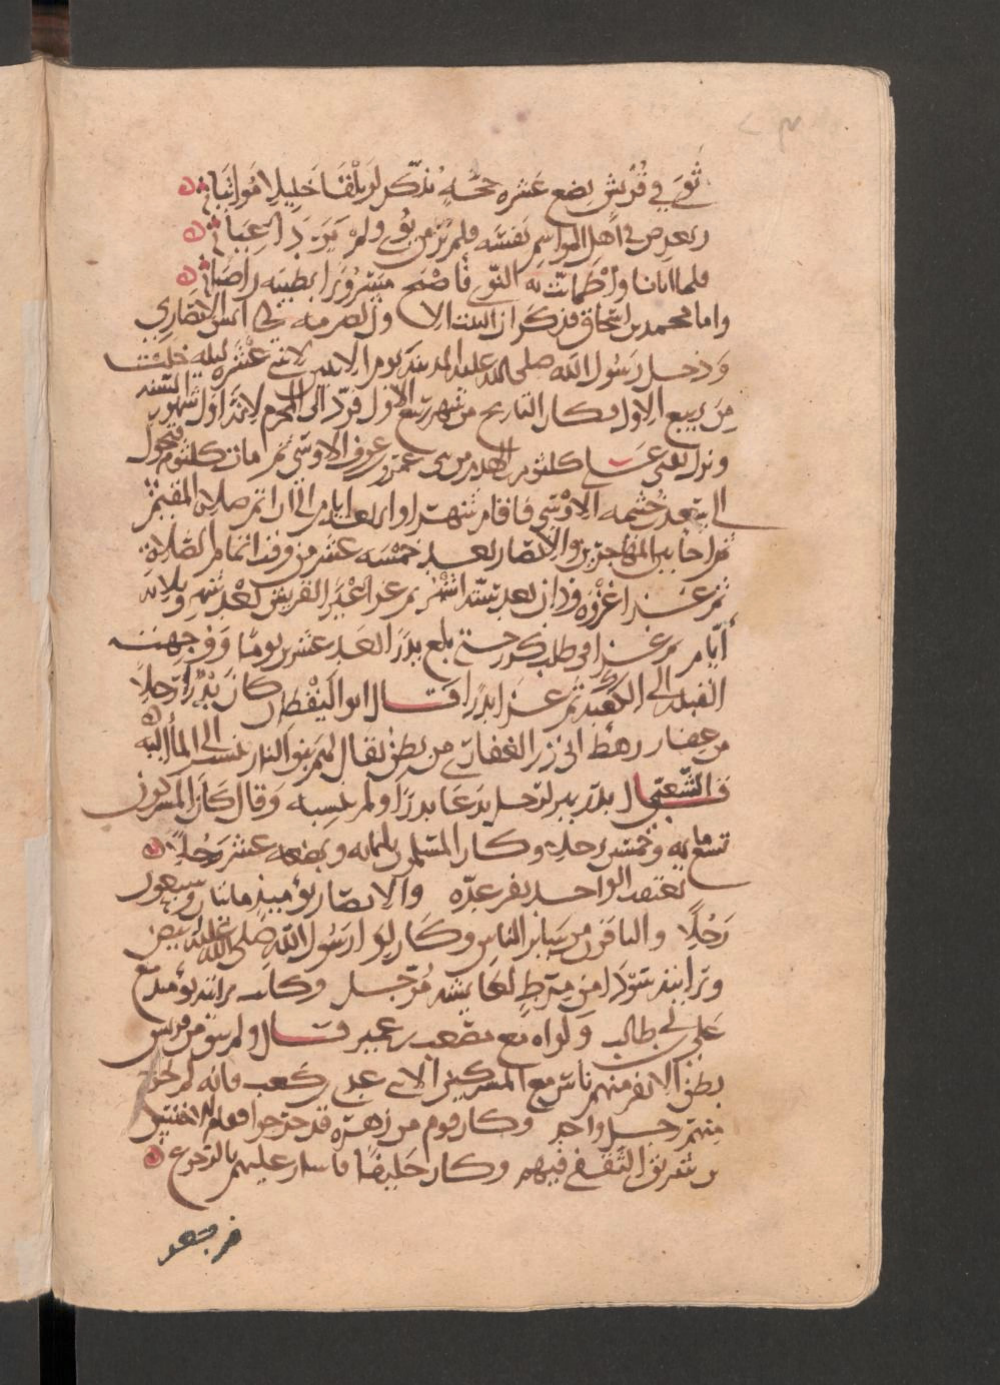 ثوى في قريش بضع عشره حجه يذكر لو يلقا خليلا مواتيا
ويعرض في اهل المواسم نفسه فلم ير من يوي ولم ير داعيا
فلما اتانا واطمانت به النوى فاصبح مسرورا بطيبه راضيا
واما محمد بن اسحاق فذكر ان البيت الاول لصرمه بن ابي انس الانصاري
ودخل رسول الله صلى الله عليه المدينه يوم الاثنين لاثنتي عشره ليله خلت
من ربيع الاول فكان التاريخ من شهر ربيع الاول فرد الى المحرم لانه اول شهور السنه
ونزل على كلثوم بن الهدم من بني عمرو بن عوف الاوسي ثم مات كلثوم فتحول
الى سعد بن خيثمه الاوسي فاقام شهرا واربعه ايام الى ان اتم صلاه المقيم
ثم اخا بين المهاجرين والانصار بعد خمسه عشر من وقت اتمام الصلاة
ثم غزا غزوه ودان بعد سته اشهر ثم غزا عير القريش بعد شهر وثلاثه
ايام ثم غزا في طلب كرز حتى بلغ بدرا بعد عشرين يوما ووجهت
القبله الى الكعبه ثم غزا بدرا قال ابو اليقظان كان بدر رجلا
من غفار رهط ابي ذر الغفاري من بطن يقال لهم بنو النار نسب الما اليه
قال الشعبي بدر بير لرجل يدعا بدرا ولم ينسبه وقال كان المشركون
تسعمايه وخمسين رجلا وكان المسلمون ثلثمايه وبضعه عشر رجلا
تعتقب الواحد نفر عده والانصار يومئذ مائتان وسبعون
رجلا والباقون من ساير الناس وكان لوا رسول الله صلى الله عليه ابيض
ورايته سودا من مرط لعايشه مرحل وكانت رايته يومئذ مع
علي بن ابي طالب ولواه مع مصعب بن عمير قال ولم يبق من قريش
بطن الا نفر منهم ناس مع المشركين الا بني عدي بن كعب فانه لم يخرج
منهم رجل واحد وكان قوم من زهره قد خرجوا فقام الاخنس
بن شريق الثقفي فيهم وكان حليفا فاشار عليهم بالرجوع
فرجعو